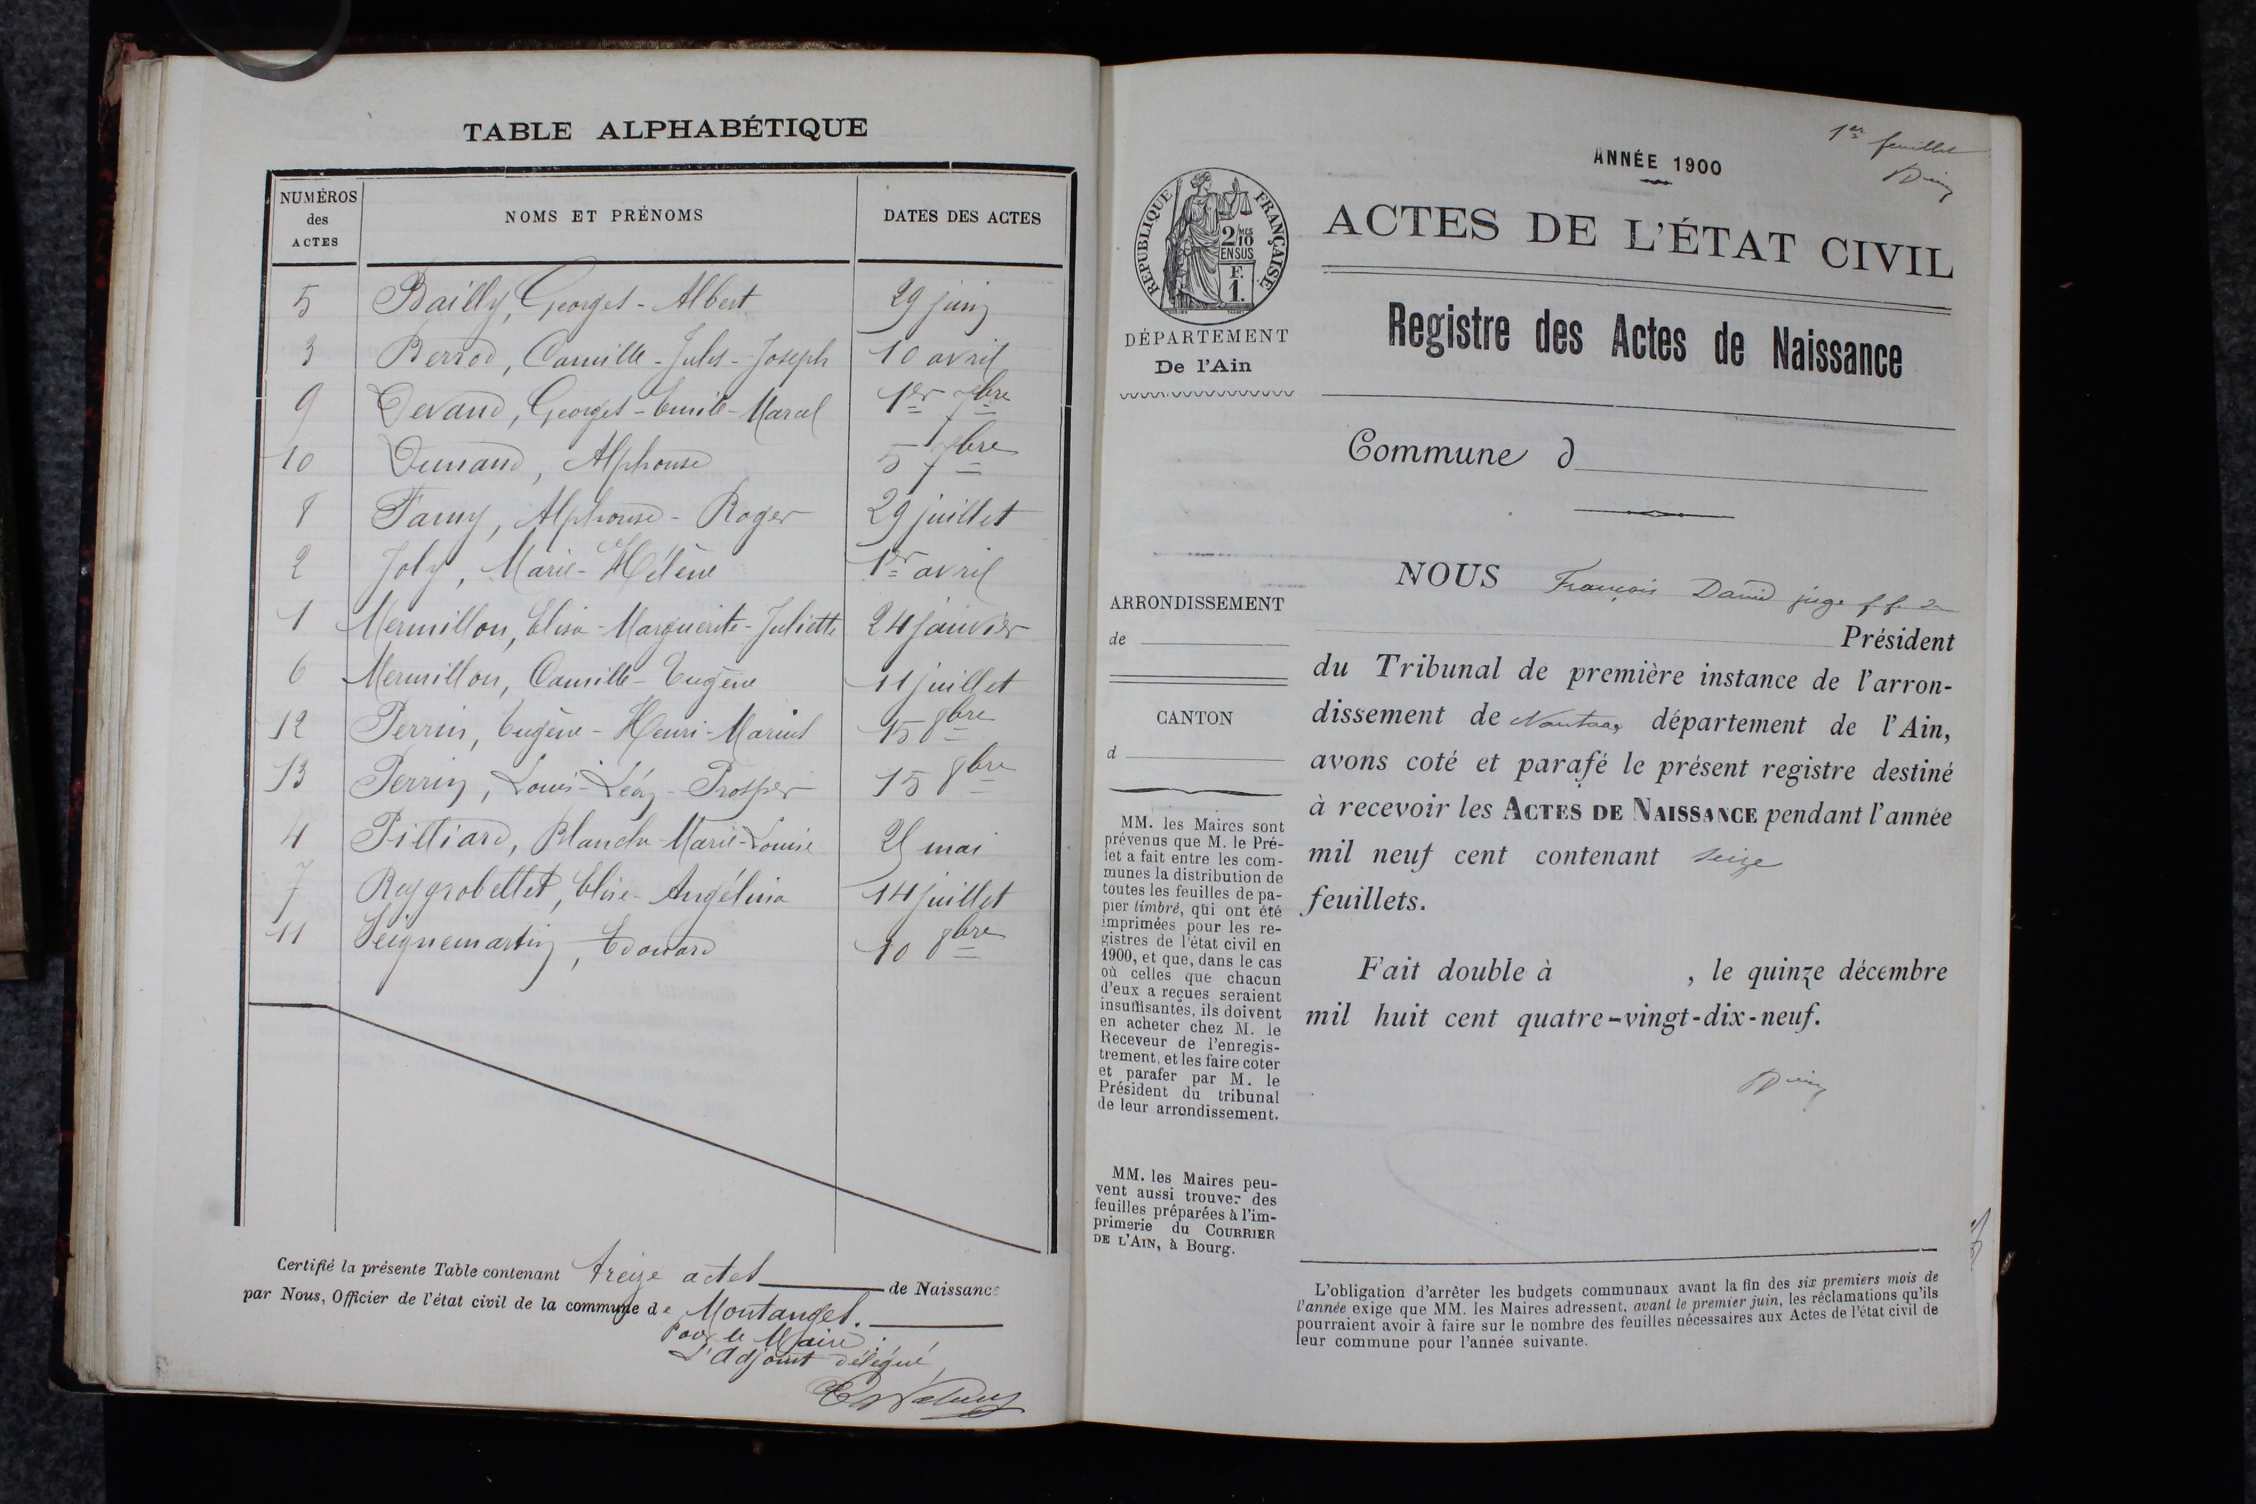 TABLE ALPHABÉTIQUE
NUMÉROS
des
ACTES
NOMS ET PRÉNOMS
DATES DES ACTES
5 Bailly, Georges-Albert 29 juin
3 Berrod, Camille-Jules-Joseph 10 avril
9 Devaud, Georges-Emile-Marcel 1er 7bre
10 Dunand, Alphonse 5 7bre
8 Famy, Alphonse-Roger 29 juillet
2 Joly, Marie-Hélène 1er avril
1 Mermillon, Elisa-Marguerite-Juliette 24 janvier
6 Mermillon, Camille-Eugène 11 juillet
12 Perrin, Eugène-Henri-Marius 15 8bre
13 Perrin, Louis-Léon-Prosper 15 8bre
4 Pilliard, Blanche-Marie-Louise 25 mai
7 Reygrobellet, Elise-Angélina 14 juillet
11 Seignemartin, Edouard 10 8bre
Certifié la présente Table contenant treize actes de Naissance
par Nous, Officier de l'état civil de la commune de Montanges.
Pour le Maire :
L'Adjoint délégué,
1er feuillet
ANNÉE 1900
RÉPUBLIQUE FRANÇAISE
2/10
MES
EN SUS
F.
1.
ACTES DE L'ÉTAT CIVIL
DÉPARTEMENT
De l'Ain
Registre des Actes de Naissance
Commune d
ARRONDISSEMENT
de
CANTON
d
MM. les Maires sont
prévenus que M. le Pré-
fet a fait entre les com-
munes la distribution de
toutes les feuilles de pa-
pier timbré, qui ont été
imprimées pour les re-
gistres de l'état civil en
1900, et que, dans le cas
où celles que chacun
d'eux a reçues seraient
insuffisantes, ils doivent
en acheter chez M. le
Receveur de l'enregis-
trement, et les faire coter
et parafer par M. le
Président du tribunal
de leur arrondissement.
MM. les Maires peu-
vent aussi trouver des
feuilles préparées à l'im-
primerie du COURRIER
DE L'AIN, à Bourg.
NOUS François David juge ff. de
Président
du Tribunal de première instance de l'arron-
dissement de Nantua, département de l'Ain,
avons coté et parafé le présent registre destiné
à recevoir les ACTES DE NAISSANCE pendant l'année
mil neuf cent contenant seize
feuillets.
Fait double à , le quinze décembre
mil huit cent quatre-vingt-dix-neuf.
L'obligation d'arrêter les budgets communaux avant la fin des six premiers mois de
l'année exige que MM. les Maires adressent, avant le premier juin, les réclamations qu'ils
pourraient avoir à faire sur le nombre des feuilles nécessaires aux Actes de l'état civil de
leur commune pour l'année suivante.